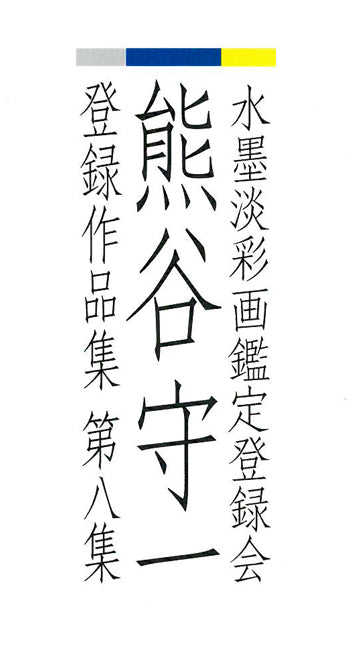 水墨淡彩画鑑定登録会
熊谷守一
登録作品集 第八集